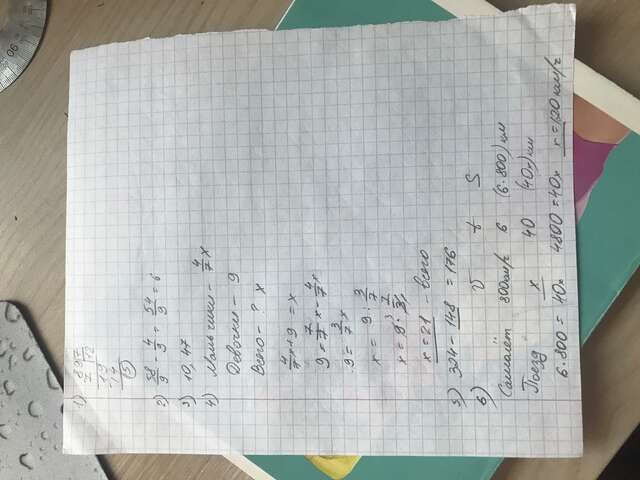 1)
2) 58/9 - 4/9 = 54/9 = 6
3) 10,47
4) Мальчики - 4/7 x
Девочки - 9
Всего - ? x
4/7 x + 9 = x
9 = 7/7 x - 4/7 x
9 = 3/7 x
x = 9 : 3/7
x = 21 - всего
5) 304 - 148 = 176
6) v t S
Самолёт 800 км/ч 6 (6·800) км
Поезд x 40 (40x) км
6·800 = 40x 4800 = 40x x = 120 км/ч